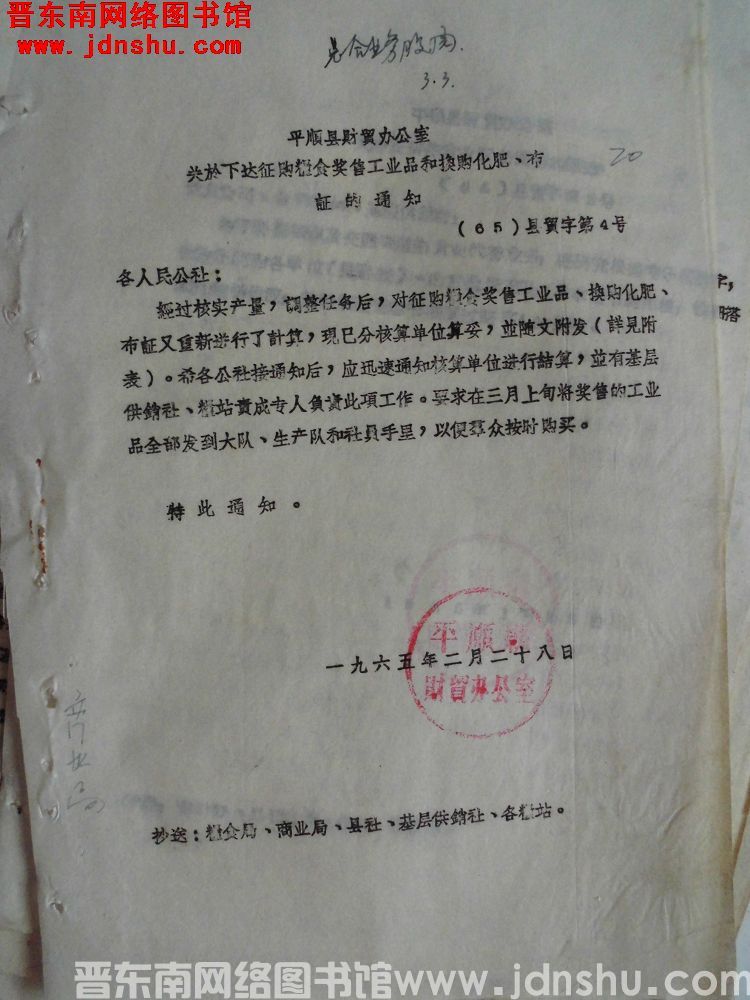 晋东南网络图书馆
www.jdnshu.com
3.3.
平順县財貿办公室
20
关於下达征购粮食奖售工业品和換购化肥、布
証的通知
(65)县貿字第4号
各人民公社：
經过核实产量，調整任务后，对征购粮食奖售工业品、換购化肥、
布証又重新进行了計算，現已分核算单位算妥，並随文附发（詳見附
表）。希各公社接通知后，应迅速通知核算单位进行結算，並有基层
供銷社、粮站責成专人負責此項工作。要求在三月上旬将奖售的工业
品全部发到大队、生产队和社員手里，以便羣众按时购买。
特此通知。
平順县
財貿办公室
一九六五年二月二十八日
商业局
抄送：粮食局、商业局、县社、基层供銷社、各粮站。
晋东南网络图书馆www.jdnshu.com